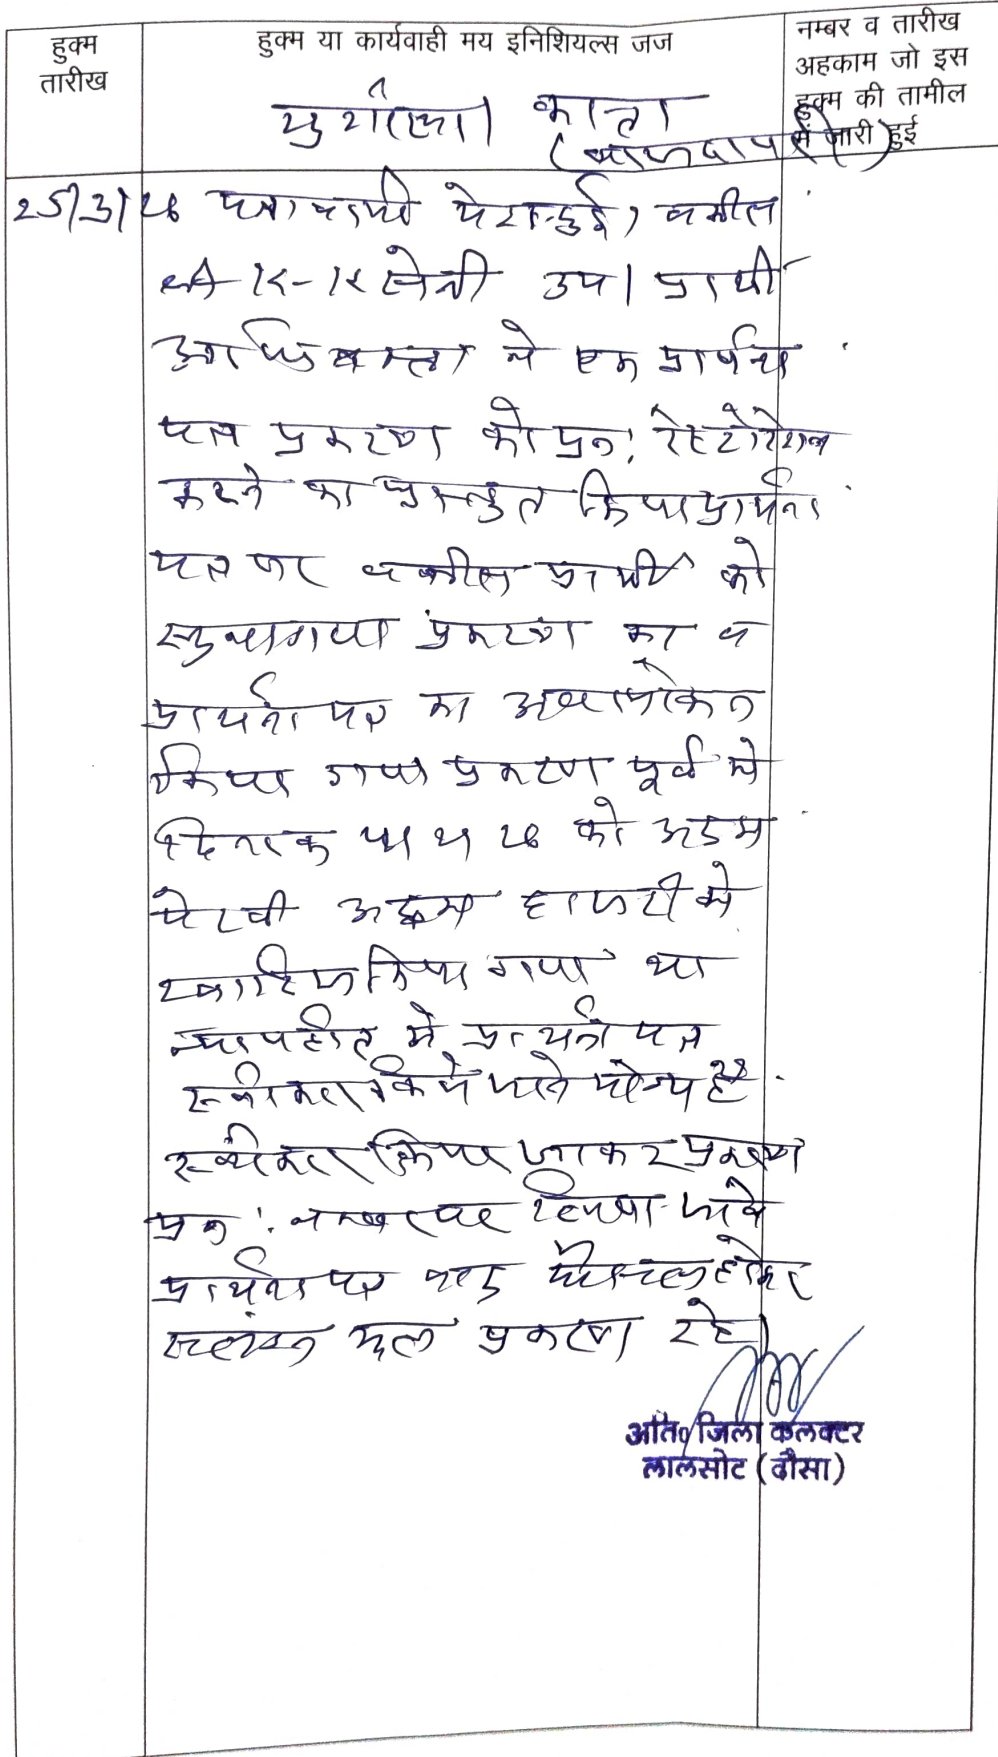 हुक्म तारीख
हुक्म या कार्यवाही मय इनिशियल्स जज
नम्बर व तारीख अहकाम जो इस हुक्म की तामील में जारी हुई
25/3/26 पत्रावली पेश हुई, वकील
R-K सैनी उप। प्रार्थी
अधिवक्ता ने एक प्रार्थना
पत्र प्रकरण को पुन: रेस्टोरेशन
करने का प्रस्तुत किया प्रार्थना
पत्र पर वकील प्रार्थी को
सुना गया प्रकरण का व
प्रार्थना पत्र का अवलोकन
किया गया प्रकरण पूर्व मे
दिनांक 26 को अदम
पेरवी अदम हाजरी मे
खारिज किया गया था
न्यायहीत मे प्रार्थना पत्र
स्वीकार किये जाने योग्य है
स्वीकार किया जाकर प्रकरण
पुन: नम्बर पर लिया जावे
प्रार्थना पत्र बाद फैसल होकर
सलंग्न मूल प्रकरण रहे।
अति० जिला कलक्टर
लालसोट (दौसा)